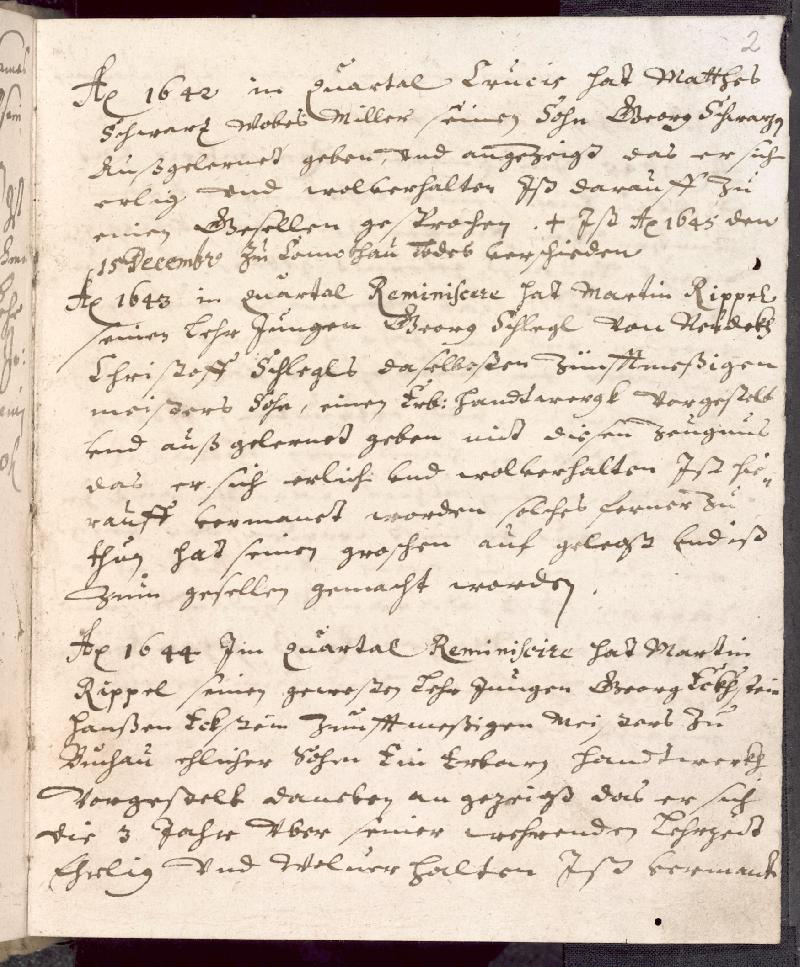 2
Ao 1642 in Quartal Crucis hat Matthes
Schwartz Wobes Miller seinen Sohn Georg Schwarzn
Außgelernet geben, und angezeigt das er sich
erlig und wolverhalten Ist darauff zu
einen Gesellen gesprochen. + Ist Ao 1645 den
15 Decembr. zu Comothau Todes verschieden
Ao 1643 in Quartal Reminiscere hat Martin Rippel
seinen Lehr Jungen Georg Schlegl von Neudekh
Christoff Schlegls daselbesten Zunfftmeßigen
meisters Sohn, einen Erb: Handtwergk vorgestelt
vnd auß gelernet geben mit diesen zeugnus
das er sich erlich vnd wolverhalten Ist hie-
rauff vermanet worden solches ferner zu
thun hat seinen groschen auf gelegt vnd ist
zum gesellen gemacht worden.
Ao 1644 Im Quartal Reminiscire hat Martin
Rippel seinen gewesten Lehr Jungen Georg Eckhstein
Hanßen Eckstein Zunfftmeßigen Meisters zu
Buchau ehlicher Sohn Ein Erbarn Handtwerkh
Vorgestelt daneben angezeigt das er sich
die 3 Jahre Vber seiner wehrenden Lehrzeit
Ehrlig Vnd Woluerhalten Ist vermant